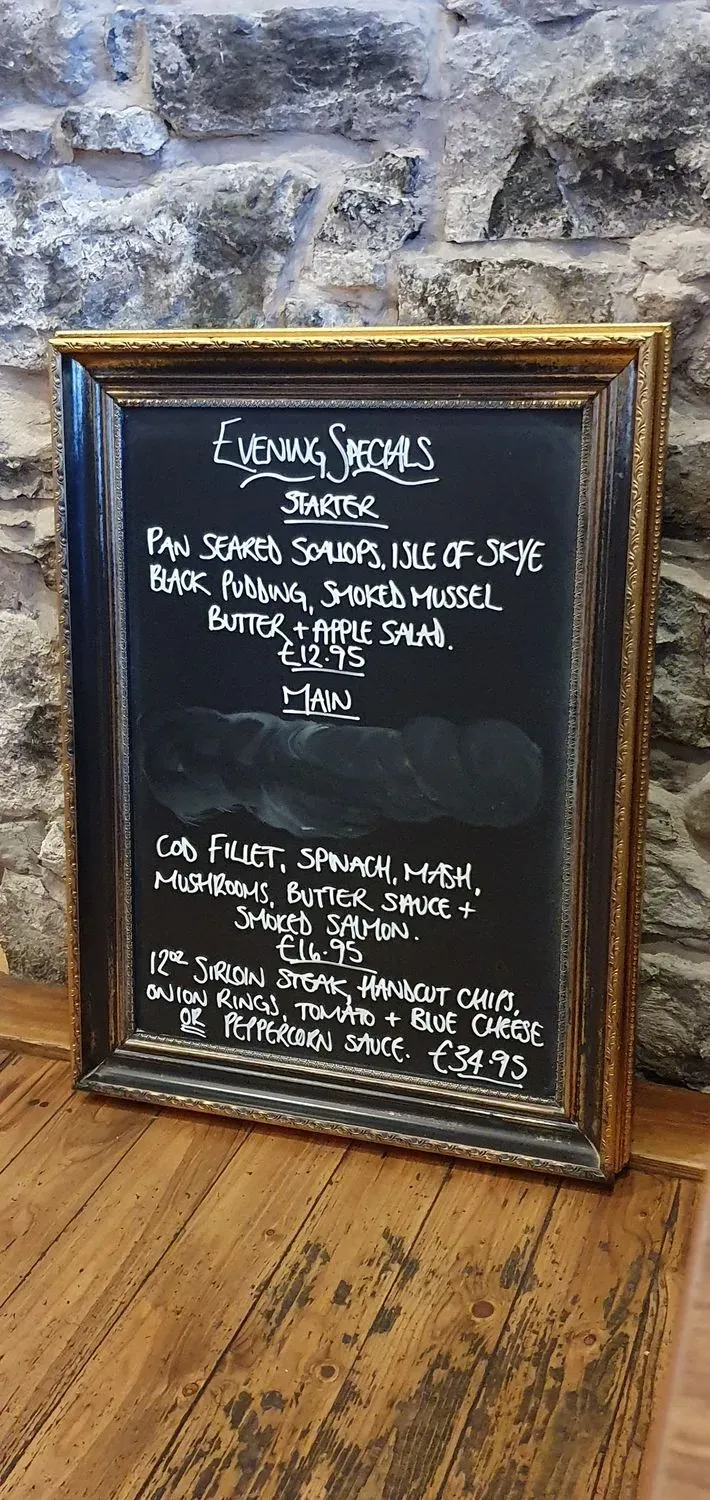 EVENING SPECIALS
STARTER
PAN SEARED SCALLOPS, ISLE OF SKYE
BLACK PUDDING, SMOKED MUSSEL
BUTTER + APPLE SALAD.
£12.95
MAIN
COD FILLET, SPINACH, MASH,
MUSHROOMS, BUTTER SAUCE +
SMOKED SALMON.
£16.95
12oz SIRLOIN STEAK, HANDCUT CHIPS,
ONION RINGS, TOMATO + BLUE CHEESE
OR PEPPERCORN SAUCE. £34.95